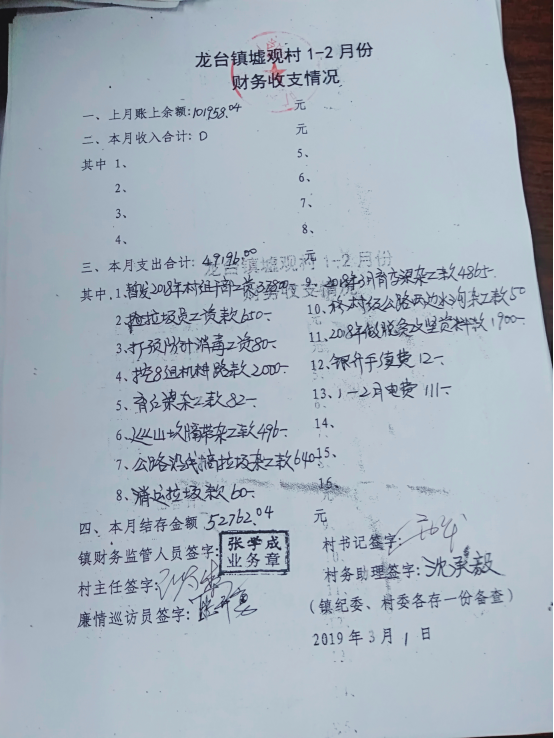 龙台镇墟观村1-2月份
财务收支情况
一、上月账上余额:101958.04 元
二、本月收入合计: 0 元
其中 1、 5、
2、 6、
3、 7、
4、 8、
三、本月支出合计: 49196.00 元
龙台镇墟观村1-2月份
财务收支情况
其中.1、暂发2018年村组干部工资 9、工款4865-
2、捡垃圾员工资款650- 10、村级公路两边水沟杂工款50
3、打预防针消毒工资80- 11、2018年做脱贫攻坚资料款1900-
4、挖8组机耕路款2000- 12、银行手续费12-
5、杂工款82- 13、1-2月电费111-
6、杂工款496- 14、
7、公路沿线捡垃圾杂工款640- 15、
8、清运垃圾款60- 16、
四、本月结存金额 52762.04 元
镇财务监管人员签字: 张学成 业务章 村书记签字:
村主任签字: 村务助理签字:沈承毅
廉情巡访员签字: (镇纪委、村委各存一份备查)
2019年3月1日